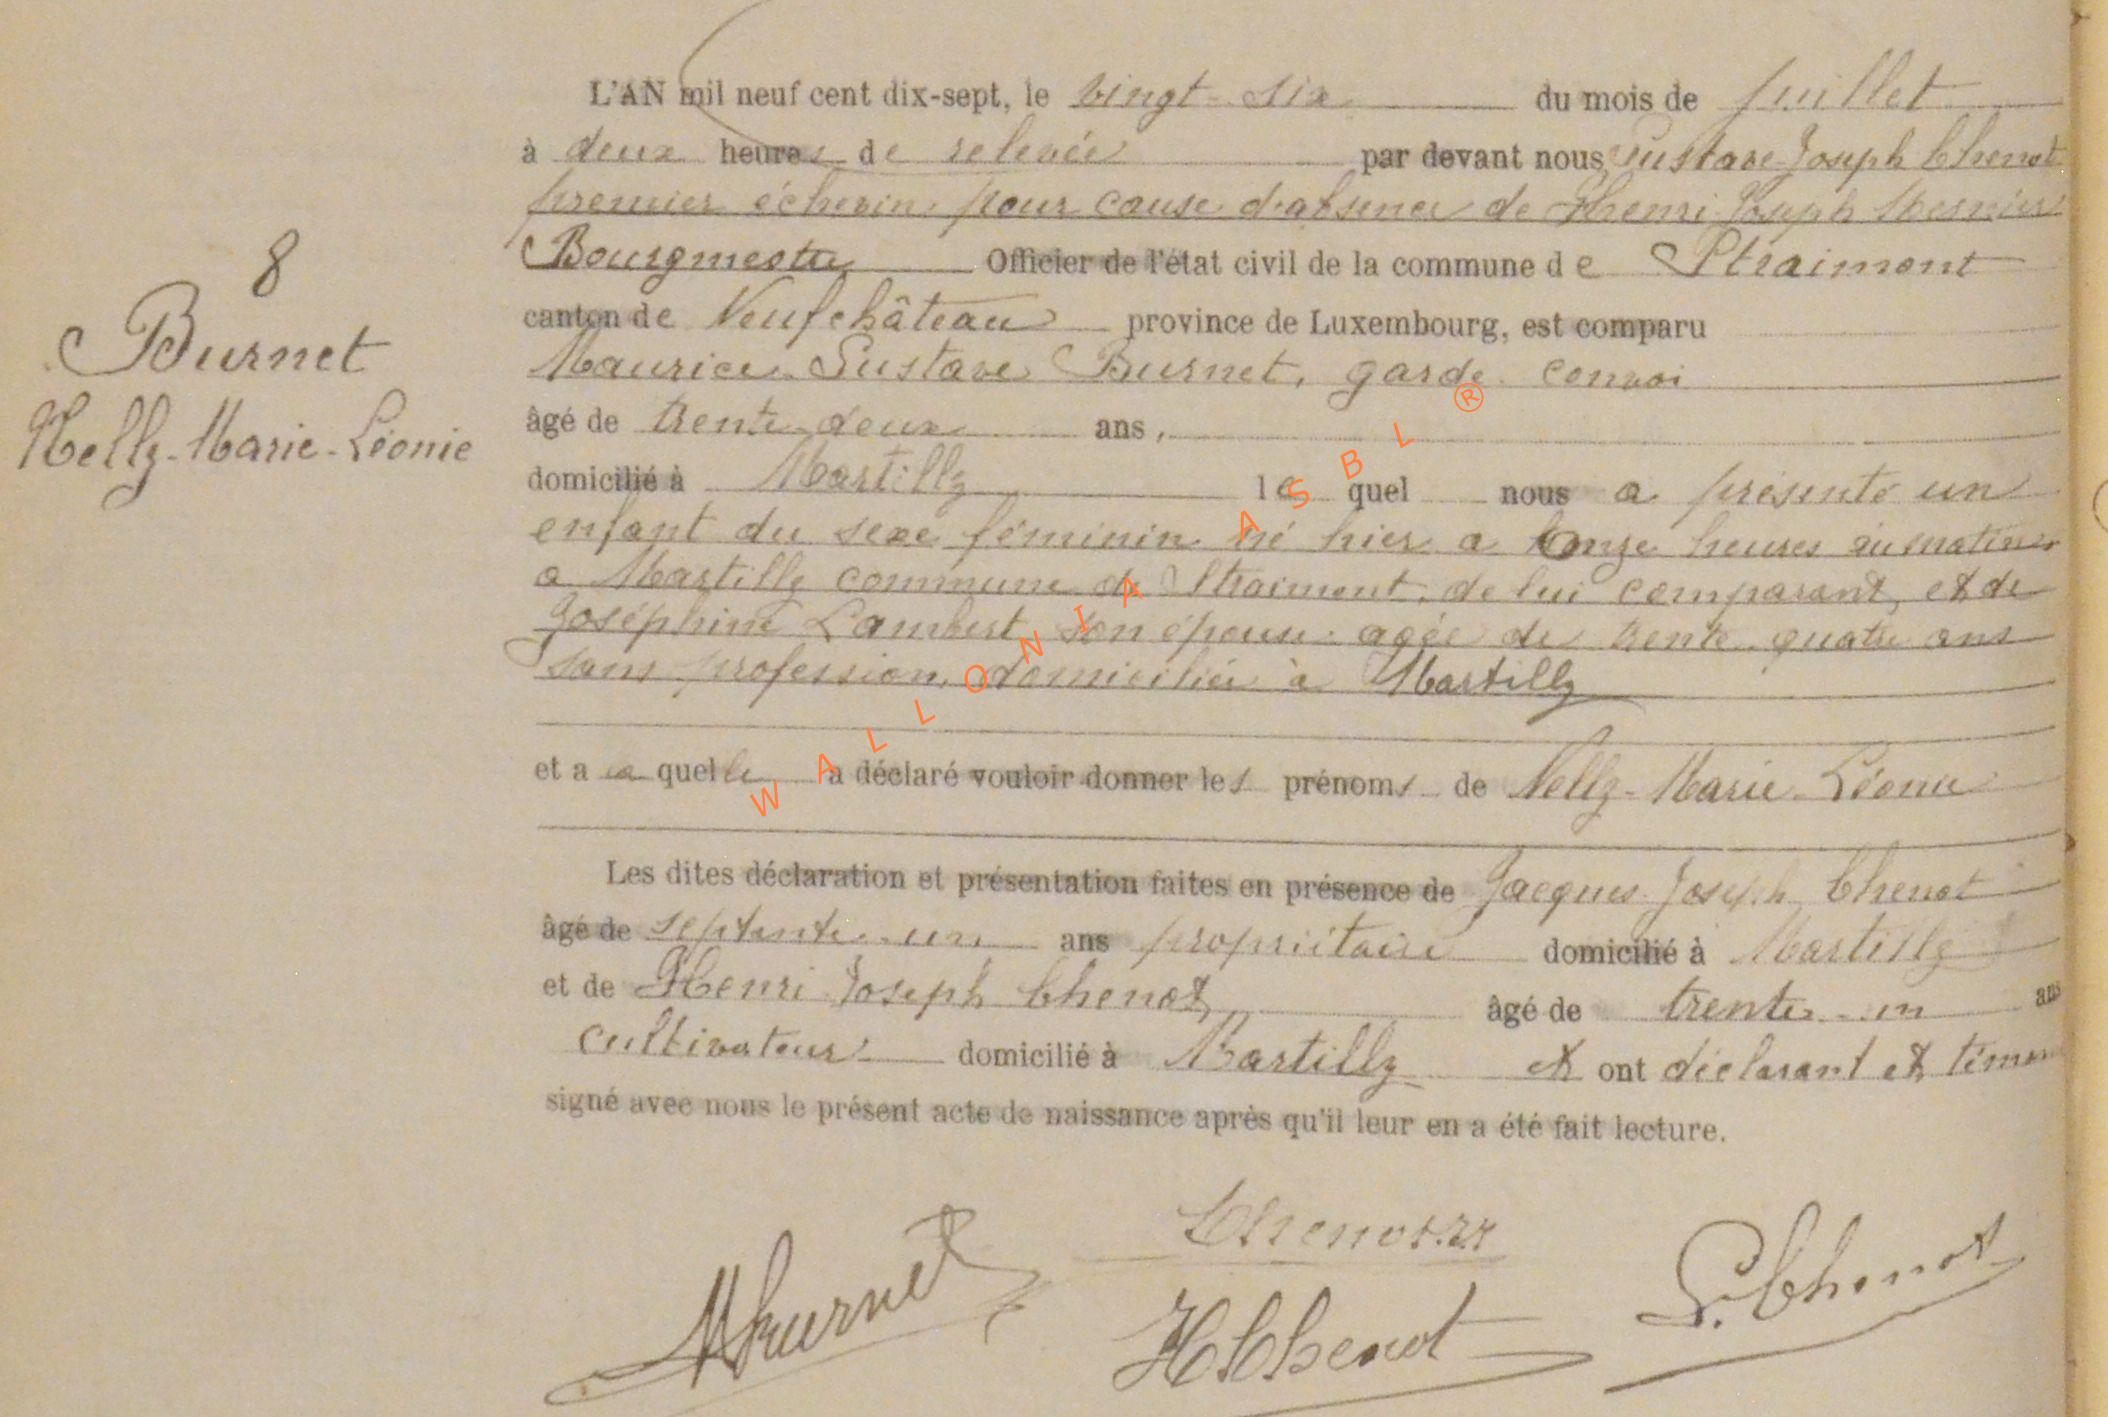 L'AN mil neuf cent dix-sept, le vingt-six du mois de juillet
à deux heures de relevée par devant nous Gustave Joseph Chenot
premier échevin pour cause d'absence de Henri Joseph
Bourgmestre Officier de l'état civil de la commune de Straimont
canton de Neufchâteau province de Luxembourg, est comparu
8
Burnet
Nelly-Marie-Léonie
Maurice Gustave Burnet, garde convoi
âgé de trente-deux ans,
domicilié à Martilly lequel nous a présenté un
enfant du sexe féminin né hier a onze heures du matin
a Martilly commune de Straimont, de lui comparant, et de
Joséphine Lambert son épouse agée de trente quatre ans
sans profession, domiciliée à Martilly
et a la quelle a déclaré vouloir donner les prénoms de Nelly-Marie-Léonie
Les dites déclaration et présentation faites en présence de Jacques Joseph Chenot
âgé de septante-un ans propriétaire domicilié à Martilly
et de Henri Joseph Chenot, âgé de trente-un ans
cultivateur domicilié à Martilly et ont déclarant et témoins
signé avec nous le présent acte de naissance après qu'il leur en a été fait lecture.
MBurnet
Chenot.JJ
HChenot
G.Chenot
WALLONIA ASBL ®